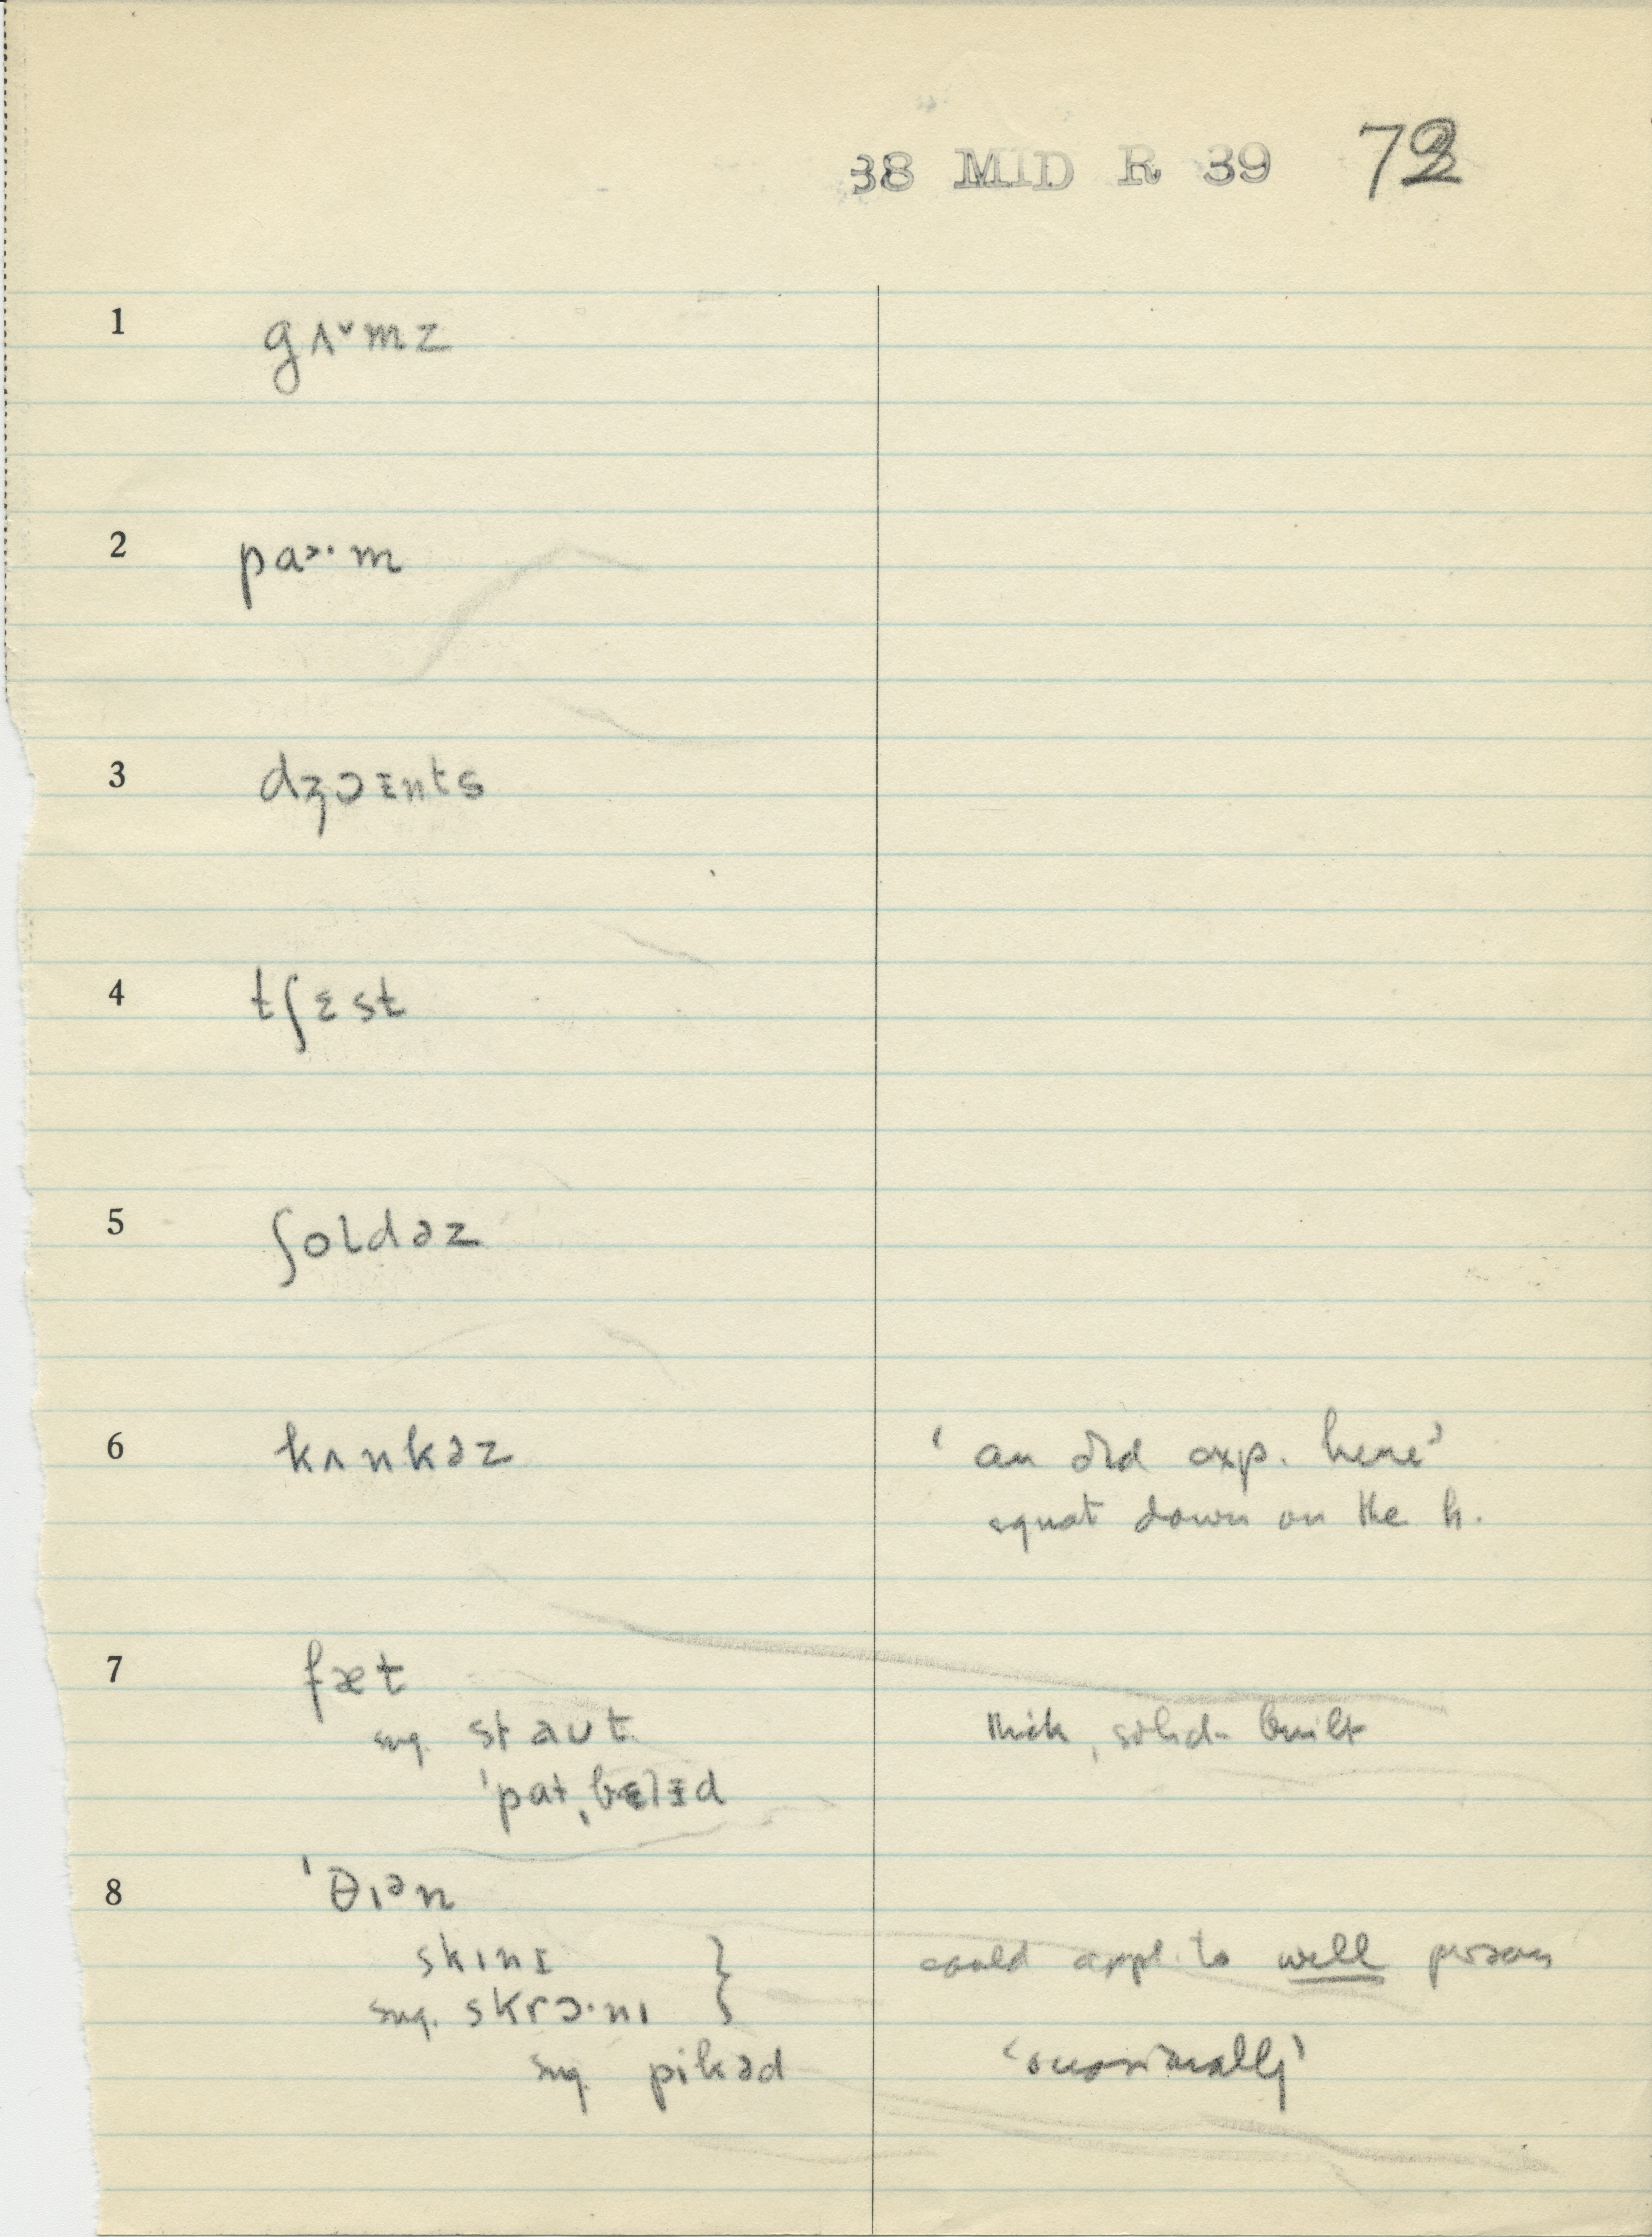 38 MID R 39 72
1 gʌᵛmz
2 paɔ·m
3 dʒɔɪnts
4 tʃɛst
5 ʃoldəz
6 kʌnkəz ‘an old exp. here’
squat down on the h.
7 fæt
sug. staut thick, solid-built
ˈpatˌbɛlɪd
8 ˈθɪᵊn
skɪnɪ } could appl. to well person
sug. skrɔ·nɪ
sug. pikəd ‘occasionally’